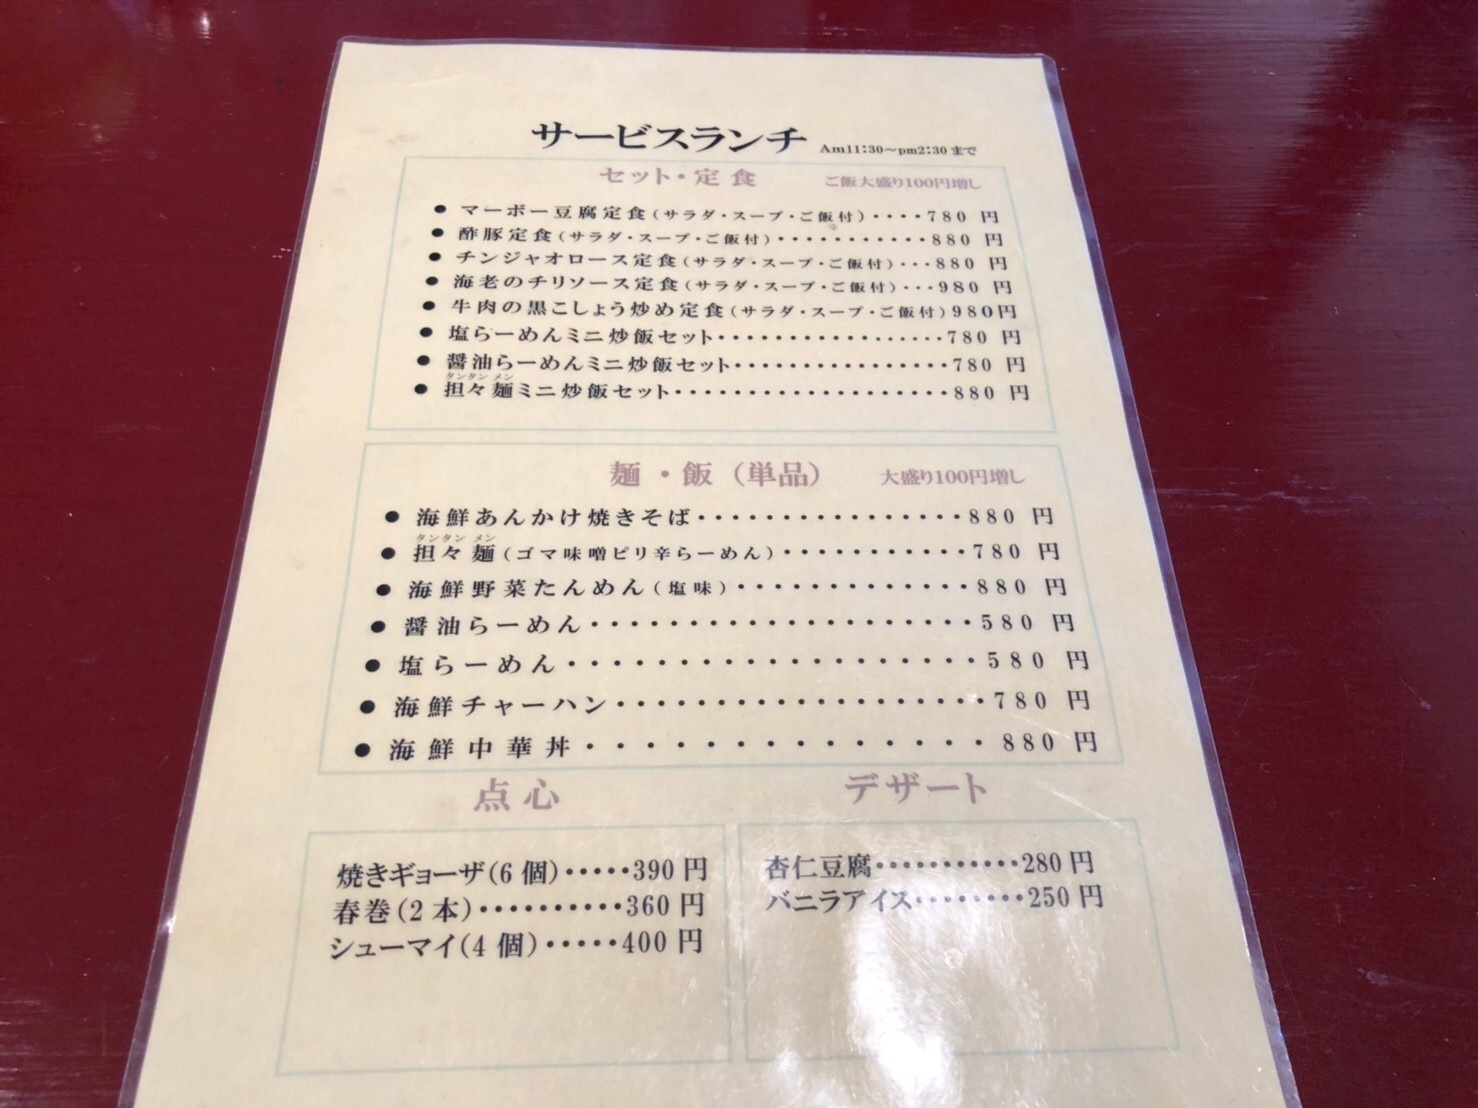 サービスランチ Am11:30～pm2:30まで
セット・定食 ご飯大盛り100円増し
● マーボー豆腐定食(サラダ・スープ・ご飯付)････780 円
● 酢豚定食(サラダ・スープ・ご飯付)･･･････････880 円
● チンジャオロース定食(サラダ・スープ・ご飯付)･･･880 円
● 海老のチリソース定食(サラダ・スープ・ご飯付)･･･980 円
● 牛肉の黒こしょう炒め定食(サラダ・スープ・ご飯付)980円
● 塩らーめんミニ炒飯セット････････････････780 円
● 醤油らーめんミニ炒飯セット･･･････････････780 円
タンタン メン
● 担々麺ミニ炒飯セット･･･････････････････880 円
麺・飯(単品) 大盛り100円増し
● 海鮮あんかけ焼きそば････････････････880 円
タンタン メン
● 担々麺(ゴマ味噌ピリ辛らーめん)･･･････････780 円
● 海鮮野菜たんめん(塩味)･････････････880 円
● 醤油らーめん･･･････････････････580 円
● 塩らーめん････････････････････580 円
● 海鮮チャーハン･･････････････････780 円
● 海鮮中華丼･･････････････880 円
点心
焼きギョーザ(6個)･････390円
春巻(2本)･･････････360円
シューマイ(4個)･････400円
デザート
杏仁豆腐･･･････････280円
バニラアイス････････250円